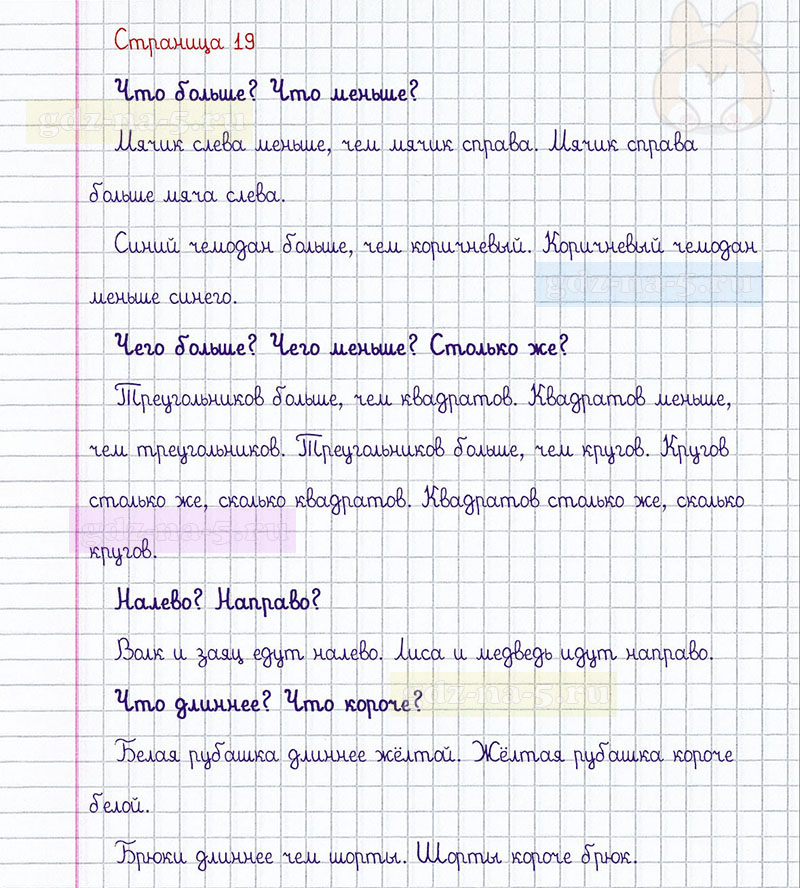 Страница 19
Что больше? Что меньше?
gdz-na-5.ru
Мячик слева меньше, чем мячик справа. Мячик справа
больше мяча слева.
Синий чемодан больше, чем коричневый. Коричневый чемодан
gdz-na-5.ru
меньше синего.
Чего больше? Чего меньше? Столько же?
Треугольников больше, чем квадратов. Квадратов меньше,
чем треугольников. Треугольников больше, чем кругов. Кругов
столько же, сколько квадратов. Квадратов столько же, сколько
gdz-na-5.ru
кругов.
Налево? Направо?
Волк и заяц едут налево. Лиса и медведь идут направо.
gdz-na-5.ru
Что длиннее? Что короче?
Белая рубашка длиннее жёлтой. Жёлтая рубашка короче
белой.
Брюки длиннее чем шорты. Шорты короче брюк.